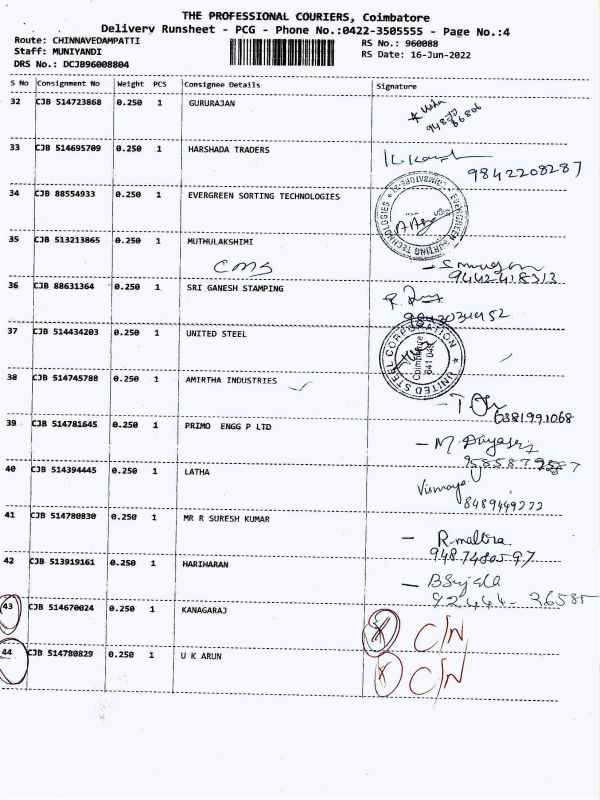 THE PROFESSIONAL COURIERS, Coimbatore
Delivery Runsheet - PCG - Phone No.:0422-3505555 - Page No.:4
Route: CHINNAVEDAMPATTI RS No.: 960088
Staff: MUNIYANDI RS Date: 16-Jun-2022
DRS No.: DCJB96008804
S No Consignment No Weight PCS Consignee Details Signature
32 CJB 514723868 0.250 1 GURURAJAN
33 CJB 514695709 0.250 1 HARSHADA TRADERS
9842208287
34 CJB 88554933 0.250 1 EVERGREEN SORTING TECHNOLOGIES
EVERGREEN SORTING TECHNOLOGIES
35 CJB 513213865 0.250 1 MUTHULAKSHIMI
CMS
36 CJB 88631364 0.250 1 SRI GANESH STAMPING
37 CJB 514434203 0.250 1 UNITED STEEL
UNITED STEEL CORPORATION
Coimbatore
641 049
38 CJB 514745788 0.250 1 AMIRTHA INDUSTRIES
6381991068
39 CJB 514781645 0.250 1 PRIMO ENGG P LTD
40 CJB 514394445 0.250 1 LATHA
Vismaya
8489449272
41 CJB 514780830 0.250 1 MR R SURESH KUMAR
42 CJB 513919161 0.250 1 HARIHARAN
43 CJB 514670024 0.250 1 KANAGARAJ
C/N
44 CJB 514780829 0.250 1 U K ARUN
C/N